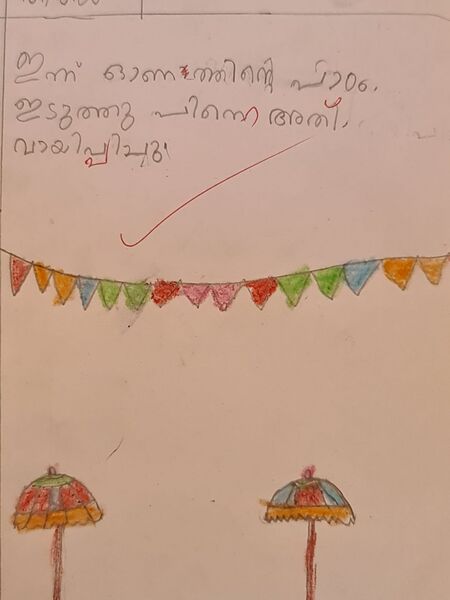 ഇന്ന് ഓണത്തിന്റെ പാഠം.
ഇടുത്തു പിന്നെ അത്.
വായിപ്പിച്ചു.